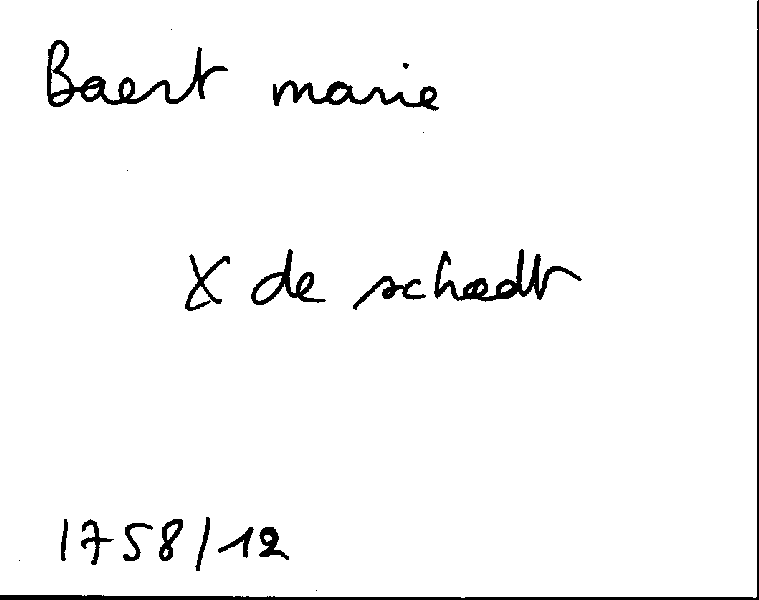 Baert marie
X de schaedt
1758/12